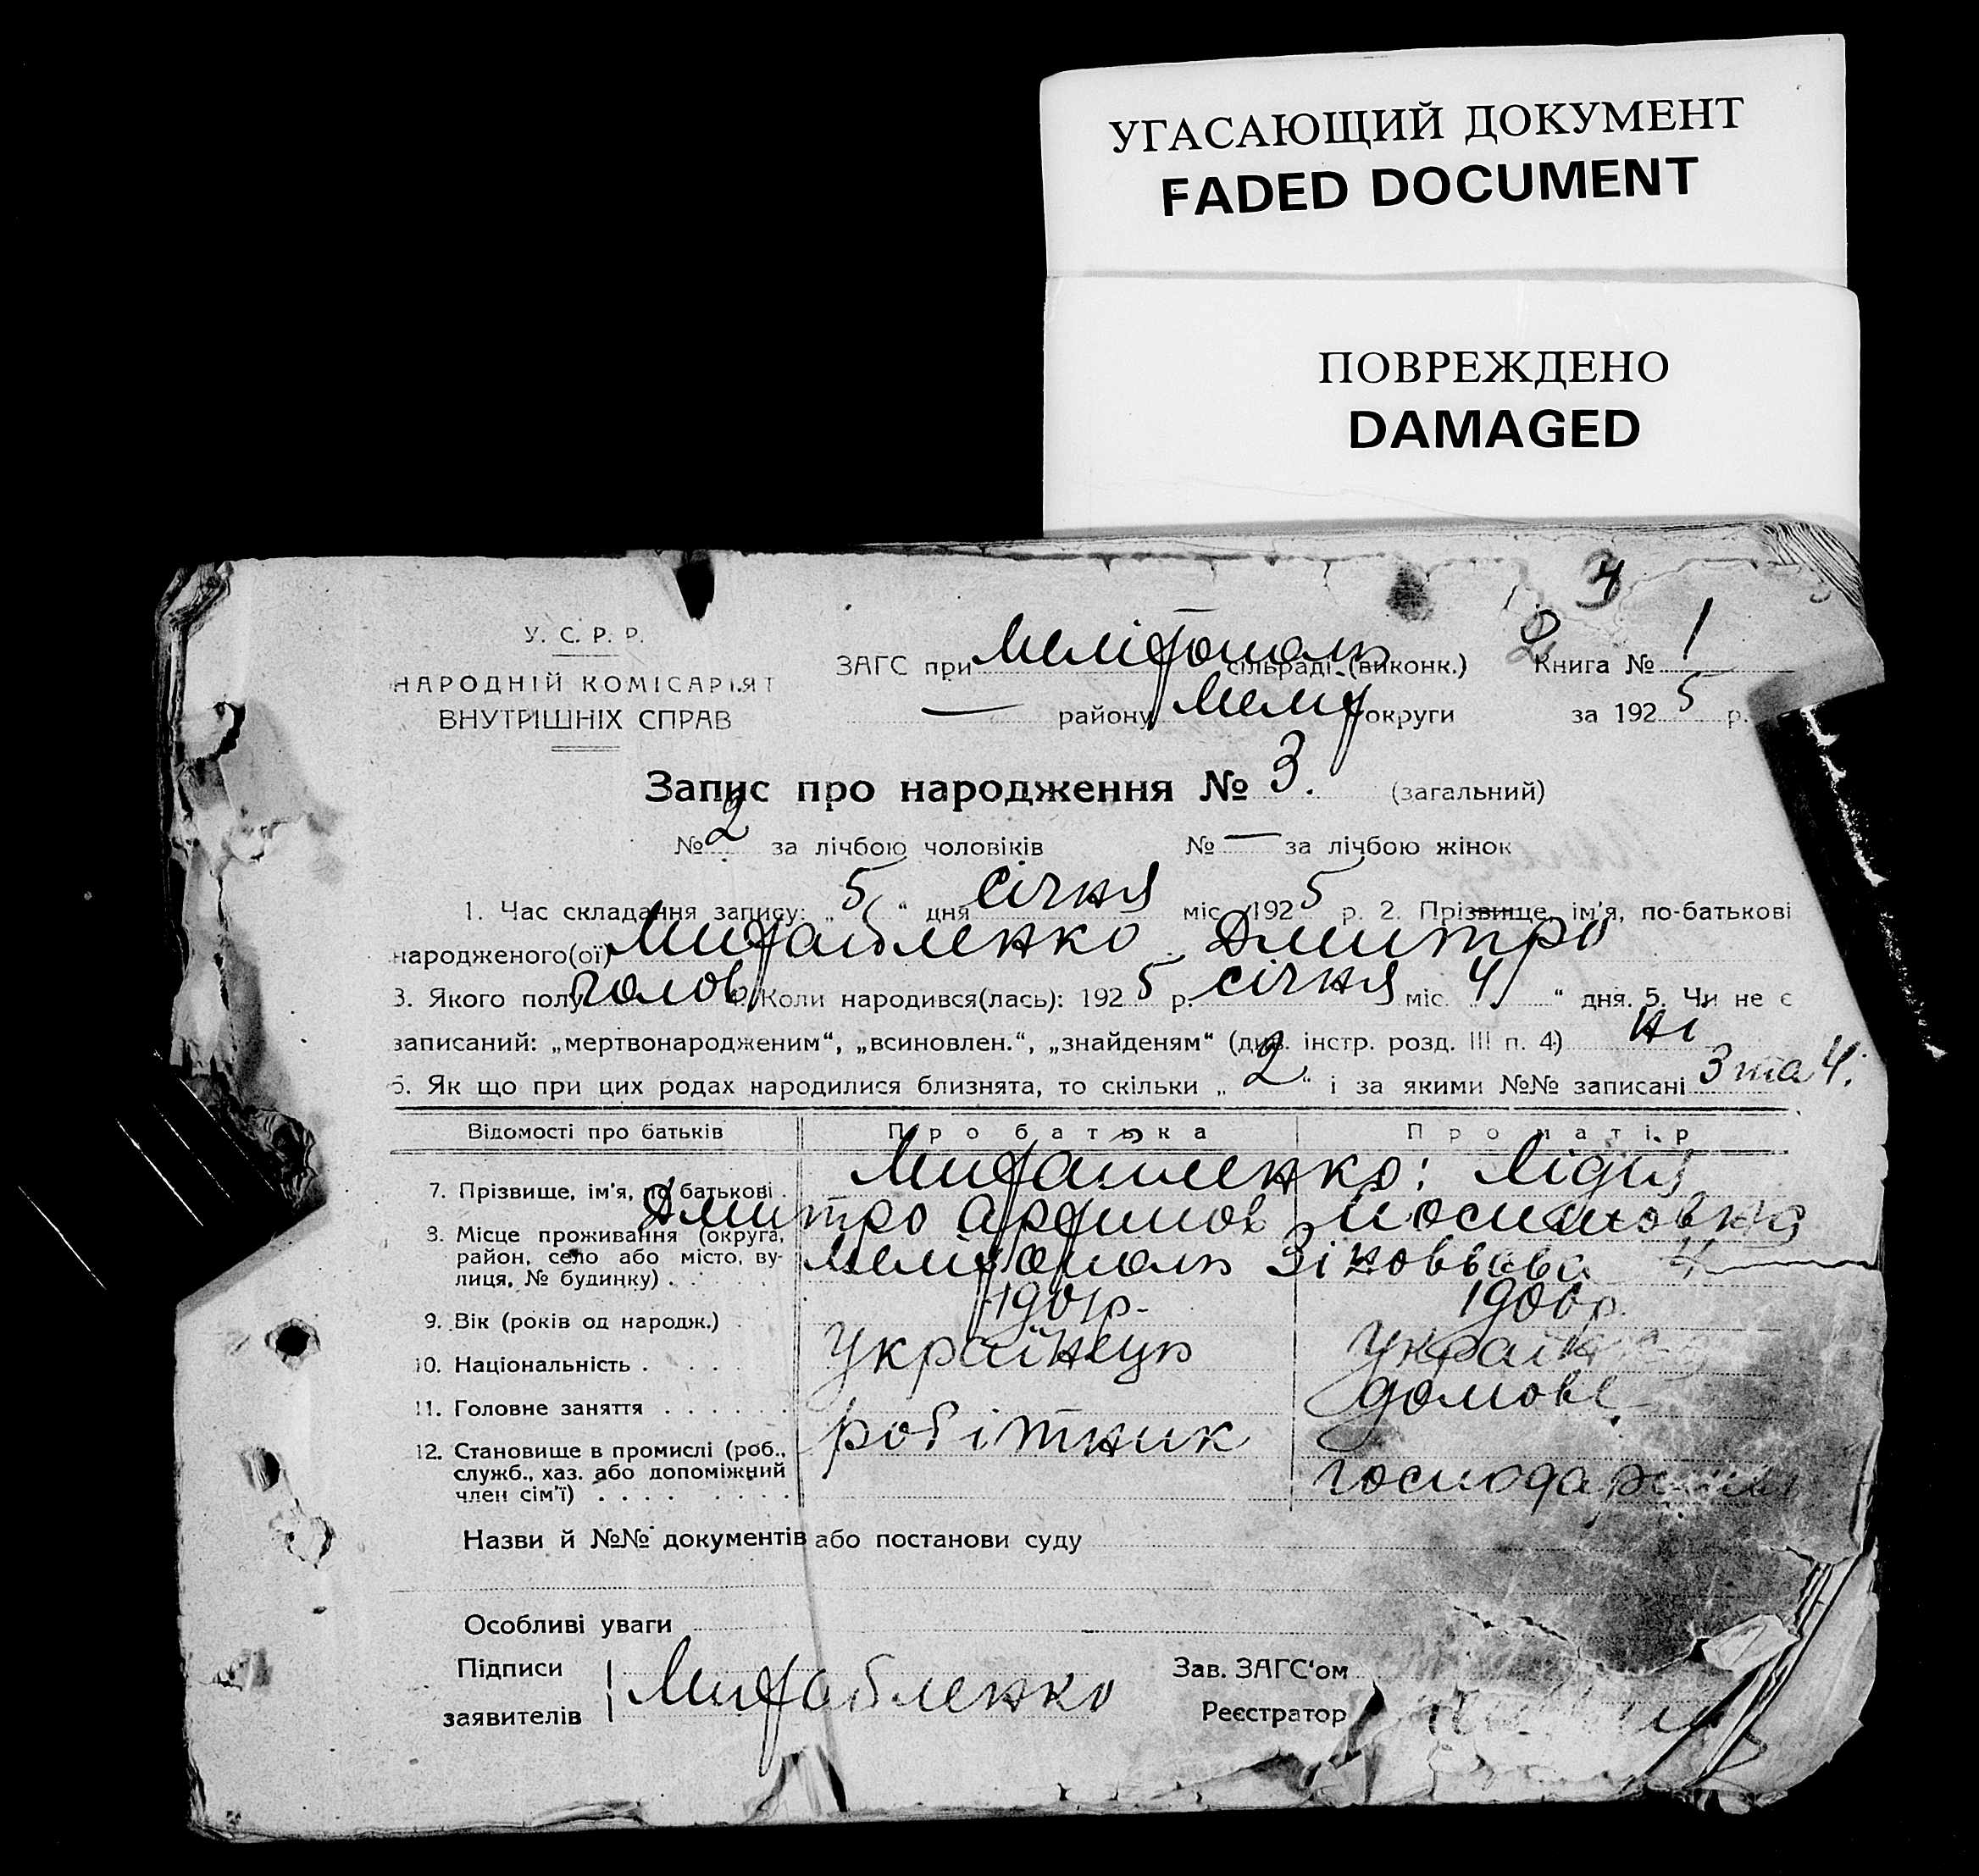 УГАСАЮЩИЙ ДОКУМЕНТ
FADED DOCUMENT
ПОВРЕЖДЕНО
DAMAGED
У. С. Р. Р.
НАРОДНІЙ КОМІСАРІЯТ
ВНУТРІШНІХ СПРАВ
ЗАГС при Мелітополь сільраді (виконк.) Книга № 1
— району Меліт округи за 1925 р.
Запис про народження № 3. (загальний)
№ 2 за лічбою чоловіків № — за лічбою жінок
1. Час складання запису: „5“ дня січня міс. 1925 р. 2. Прізвище, ім'я, по-батькові
народженого(ої) Дмитро
3. Якого полу голов Коли народився(лась): 1925 р. січня міс. „4“ дня. 5. Чи не є
записаний: „мертвонародженим“, „всиновлен.“, „знайденям“ (див. інстр. розд. III п. 4) ні
6. Як що при цих родах народилися близнята, то скільки „2“ і за якими №№ записані 3 та 4.
Відомості про батьків Про батька Про матір
7. Прізвище, ім'я, по батькові Лідия
Дмитро
8. Місце проживання (округа,
район, село або місто, ву-
лиця, № будинку) Мелітополь
9. Вік (років од народж.) 1901р. 1900р.
10. Національність Українець Україн
11. Головне заняття робітник домове
12. Становище в промислі (роб.,
служб., хаз. або допоміжний
член сім'ї) господар
Назви й №№ документів або постанови суду
Особливі уваги
Підписи Зав. ЗАГС'ом
заявителів Реєстратор